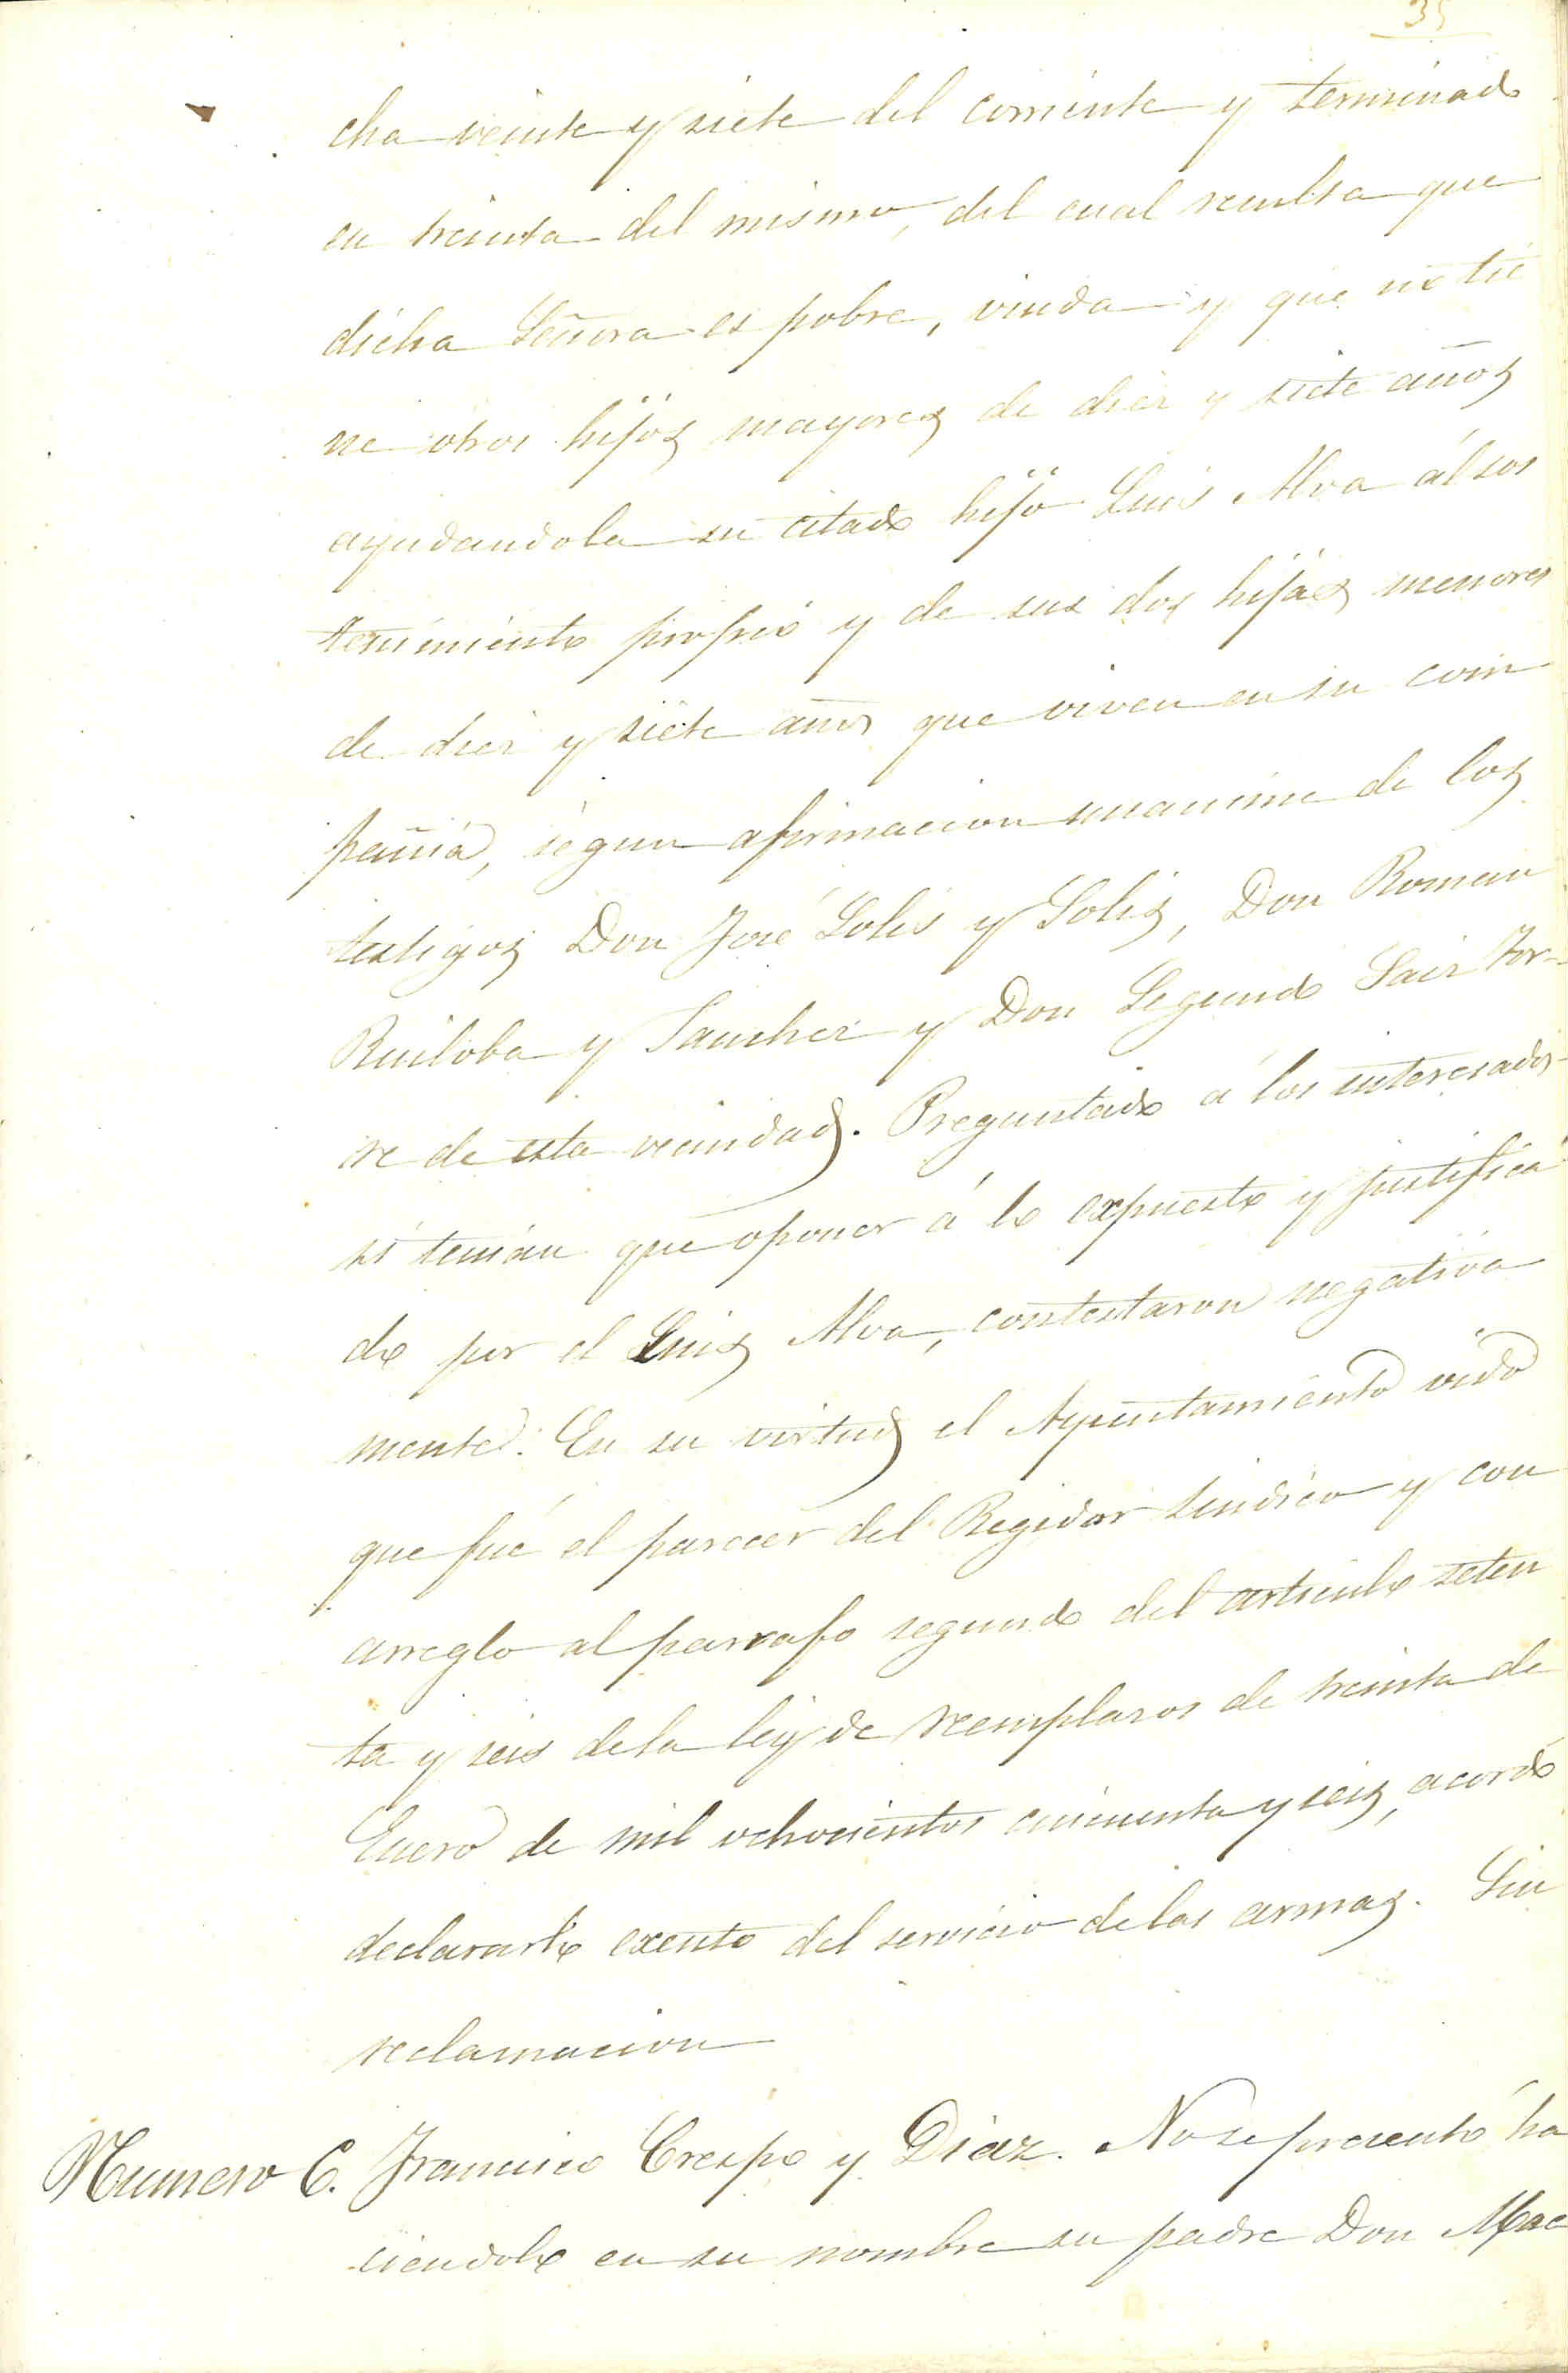 35
cha veinte y siete del corriente y terminado
en treinta del mismo, del cual resulta que
dicha Señora es pobre, viuda y que no tie
ne otros hijos mayores de diez y siete años
ayudandola su citado hijo Luis Alva al sos
tenimiento propio y de sus dos hijas menores
de diez y siete años que viven en su com
pañia, segun afirmacion unanime de los
testigos Don José Solis y Solis, Don Roman
Ruiloba y Sanchez y Don Segundo Sainz Tor-
re de esta vecindad. Preguntado á los interesados
si tenian que oponer á lo expuesto y justifica
do por el Luis Alva, contestaron negativa
mente. En su virtud el Ayuntamiento vido
que fué el parecer del Regidor sindico y con
arreglo al parrafo segundo del articulo seten
ta y seis de la ley de remplazos de treinta de
Enero de mil ochocientos cincuenta y seis, acordó
declararlo exento del servicio de las armas. Sin
reclamacion
Numero 6. Francisco Crespo y Diaz. No se presentó ha
ciendolo en su nombre su padre Don Mac